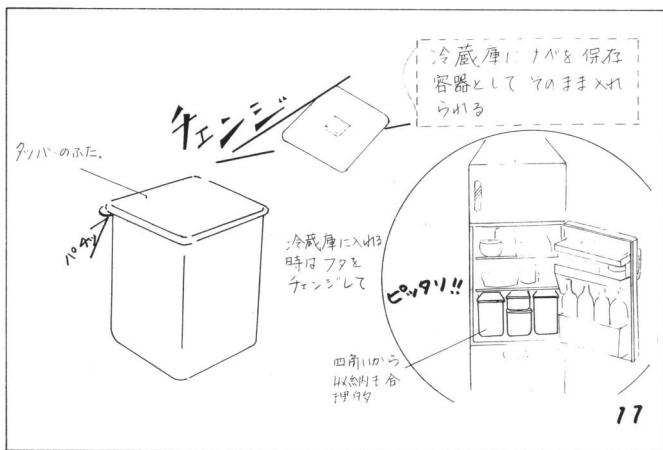 冷蔵庫にナベを保存
容器として そのまま入れ
られる
チェンジ
タッパーのふた。
パタッ
冷蔵庫に入れる
時は フタを
チェンジして
ピッタリ!!
四角いから
収納も合
理的
17